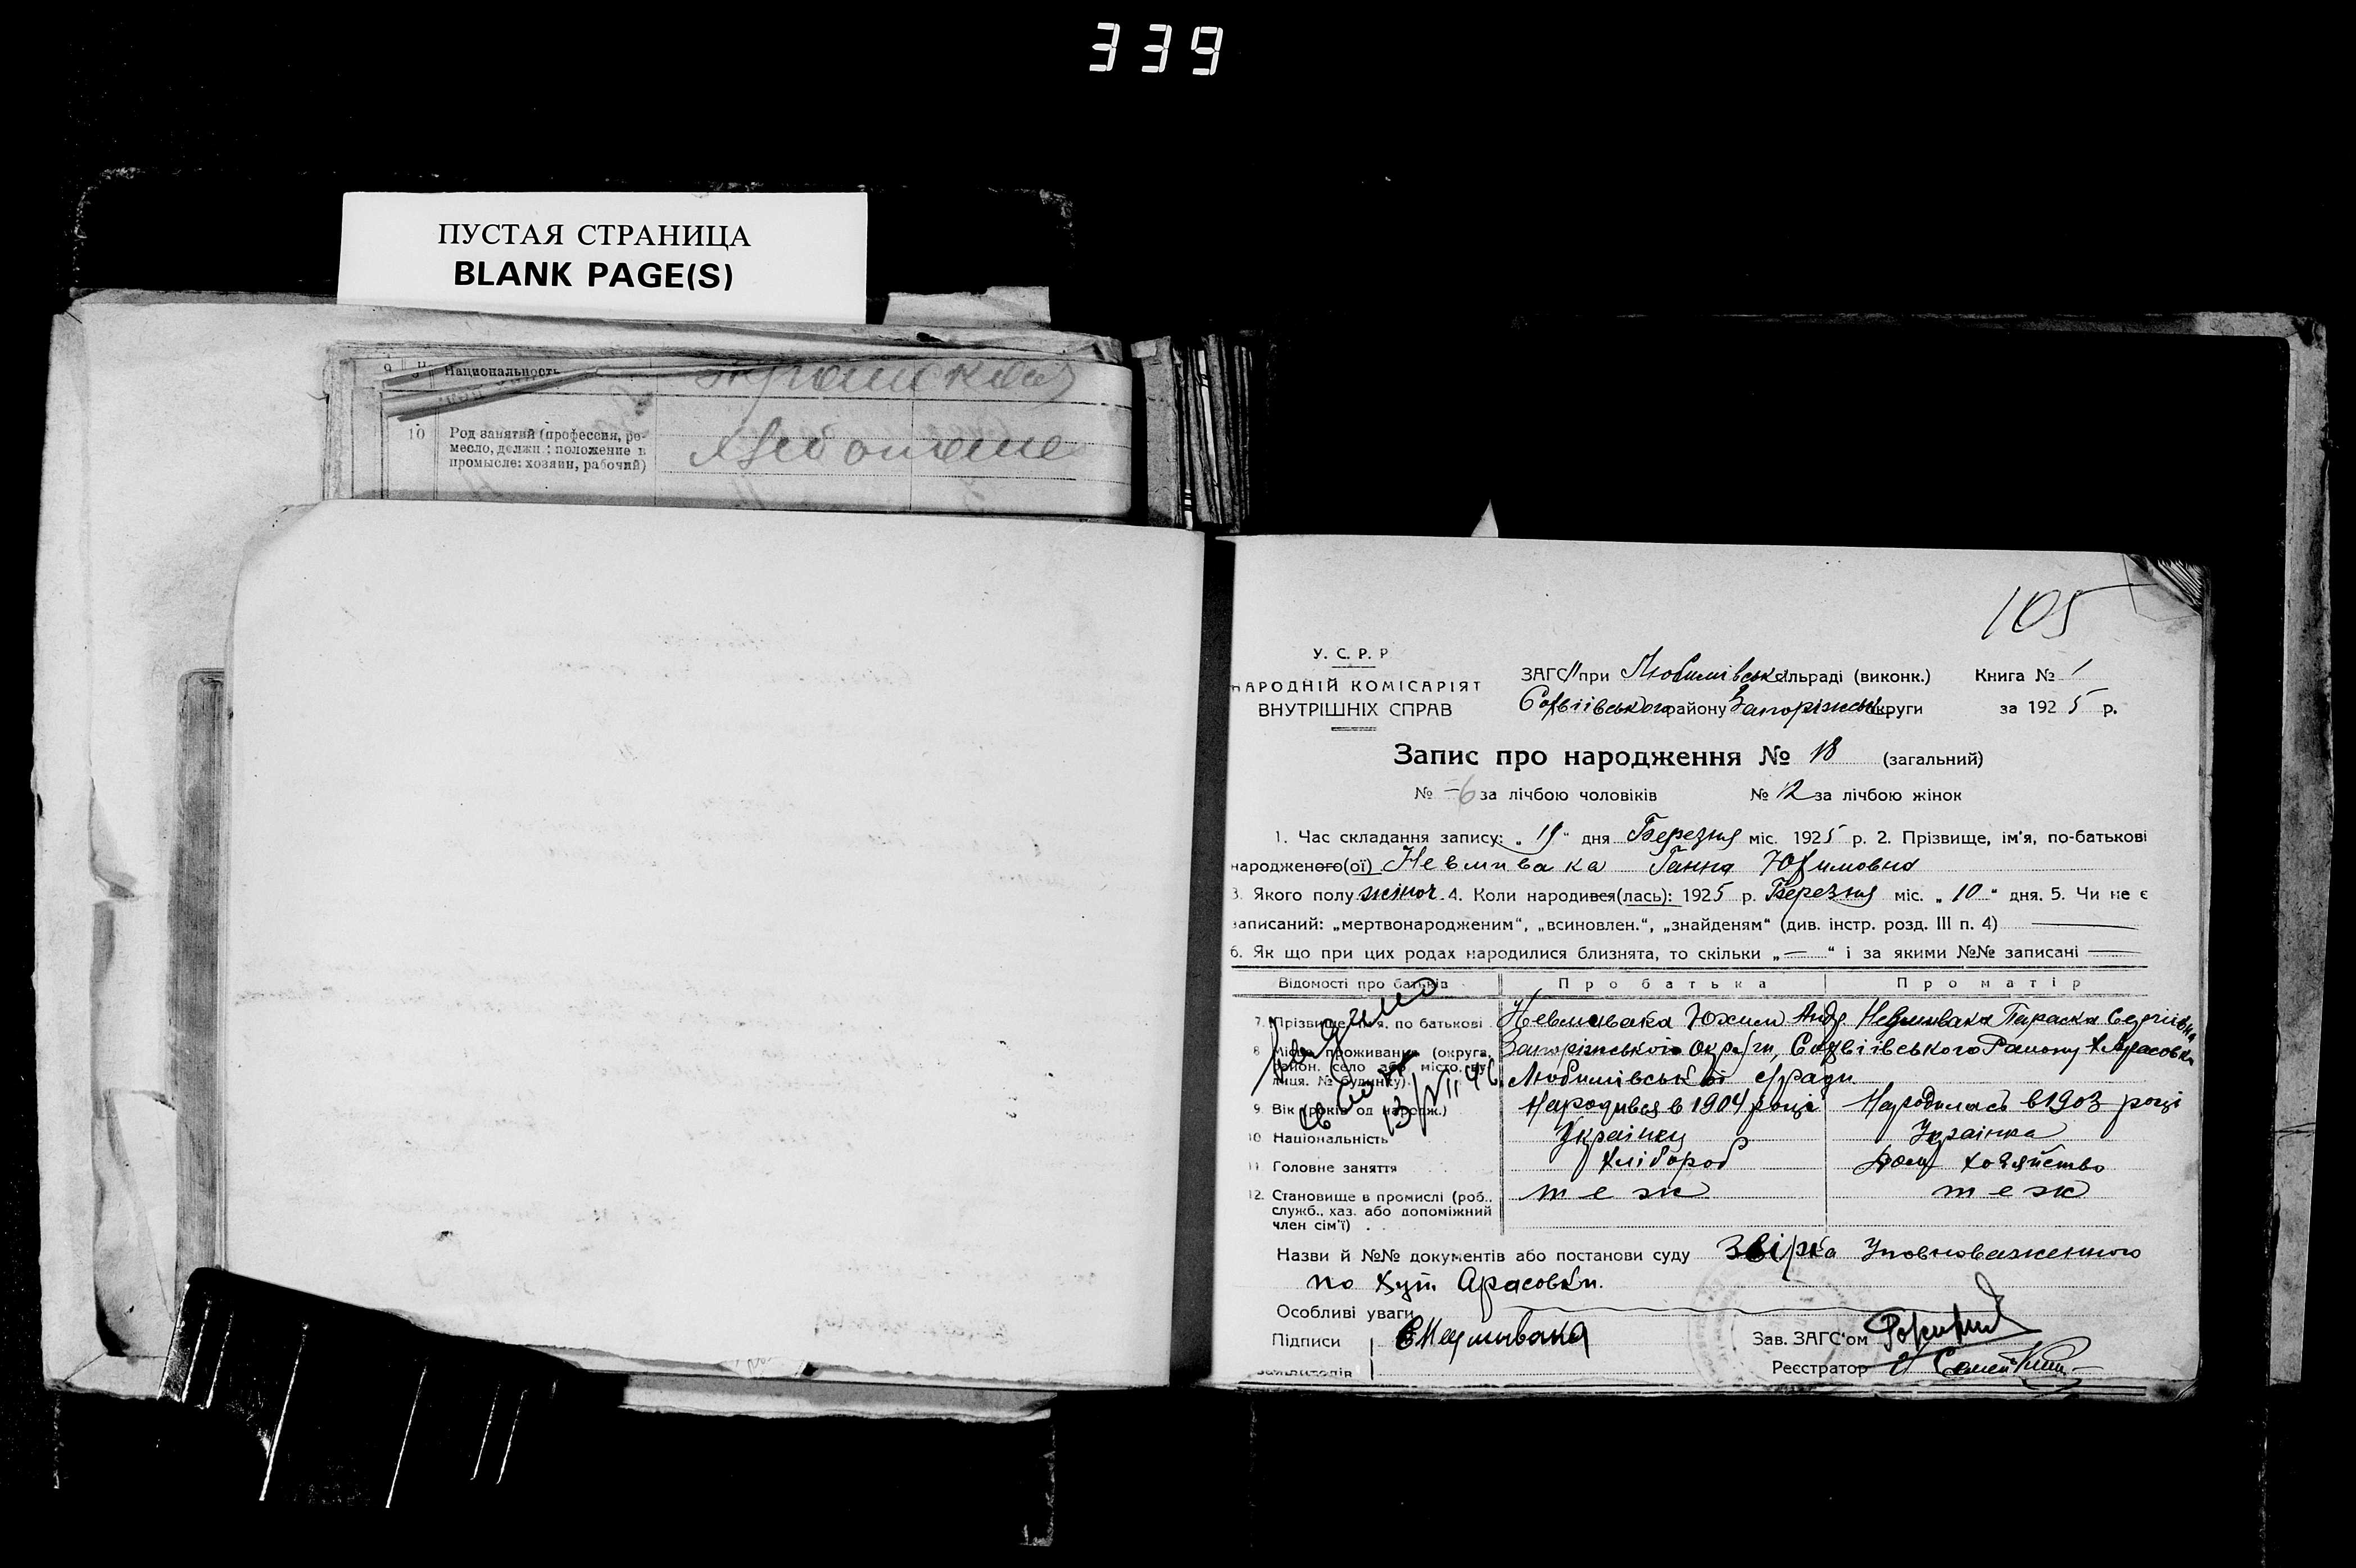 339
ПУСТАЯ СТРАНИЦА
BLANK PAGE(S)
Национальность
10 Род занятий (профессия, ре-
месло, должн.; положение в
промысле: хозяин, рабочий)
105
У. С. Р. Р
НАРОДНІЙ КОМІСАРІЯТ
ВНУТРІШНІХ СПРАВ
ЗАГС при Любимівськ ільраді (виконк.) Книга № 1
Софіївського району Запоріжськ округи за 1925 р.
Запис про народження № 18 (загальний)
№ – 6 за лічбою чоловіків № 12 за лічбою жінок
1. Час складання запису: „19“ дня Березня міс. 1925 р. 2. Прізвище, ім'я, по-батькові
народженого(ої) Невмивака Ганна Юхимовна
3. Якого полу жіноч. 4. Коли народився(лась): 1925 р. Березня міс. „10“ дня. 5. Чи не є
записаний: „мертвонародженим“, „всиновлен.“, „знайденям“ (див. інстр. розд. III п. 4)
6. Як що при цих родах народилися близнята, то скільки „—“ і за якими №№ записані —
Відомості про батьків Про батька Про матір
7. Прізвище, ім'я, по батькові Невмивака Юхим Андр Невмивака Параска Сергіівна
8 Місце проживання (округа, Запоріжськоі Округи, Софіівського Району Х Арасовки
район. село або місто. ву-
лиця. № будинку). Любимівськоі с/ради
9. Вік (років од народж.) Народився в 1904 році Народилась в 1903 році
13/VII 46
10 Національність Украінец Украінка
11 Головне заняття Хлібороб Дом хозяйство
12. Становище в промислі (роб., теж теж
служб., хаз. або допоміжний
член сім'ї)
Назви й №№ документів або постанови суду Уповноваженого
по Хут Арасовки.
Особливі уваги
Підписи
Зав. ЗАГС'ом
Реєстратор